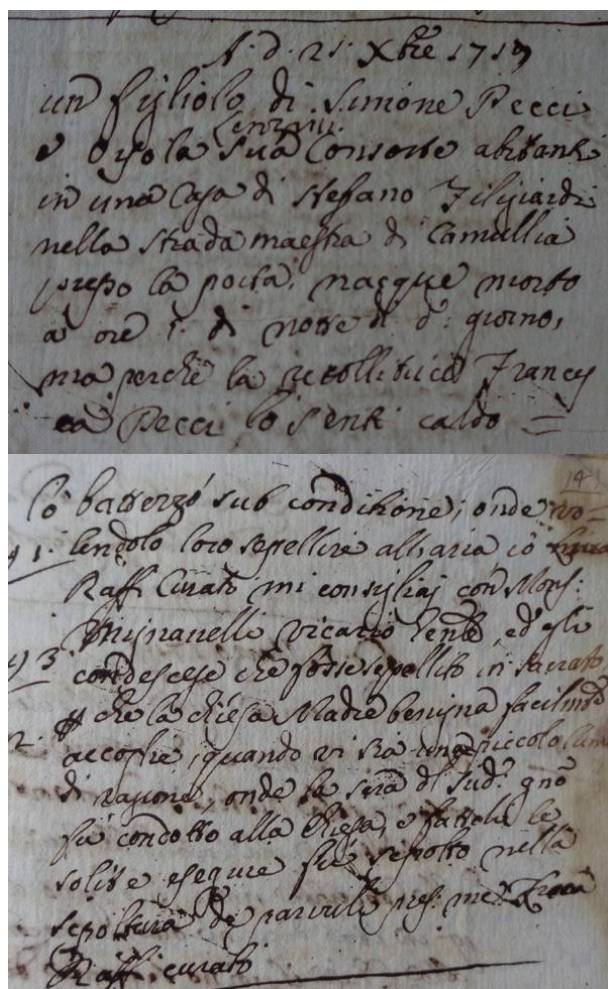 A: d. 21: Xbre 1717
un figliolo di Simone Pecci
Cenzini
e Orsola sua Consorte abitante
in una Casa di Stefano Filigiardi
nella strada maestra di Camullia
presso la porta, nacque morto
à ore 1: di notte di d: giorno,
ma perche la recollitrice Francesc
ca Pecci lo senti caldo =
14
lo battezzó sub condizione; onde vo=
lendolo loro sepellire all'aria io
Raff. Curato mi consigliaj con Mons:
vicario Genle, ed egli
condescese che fosse sepellito in sacrato
che la chiesa Madre benigna facilmte
accoglie, quando vi sia un piccolo lume
di ragione, onde la sera di sud: gno
fù condotto alla Chiesa, e fatteli le
solite esequie fù sepolto nella
sepoltura de parvuli pres: me
Raff: curato